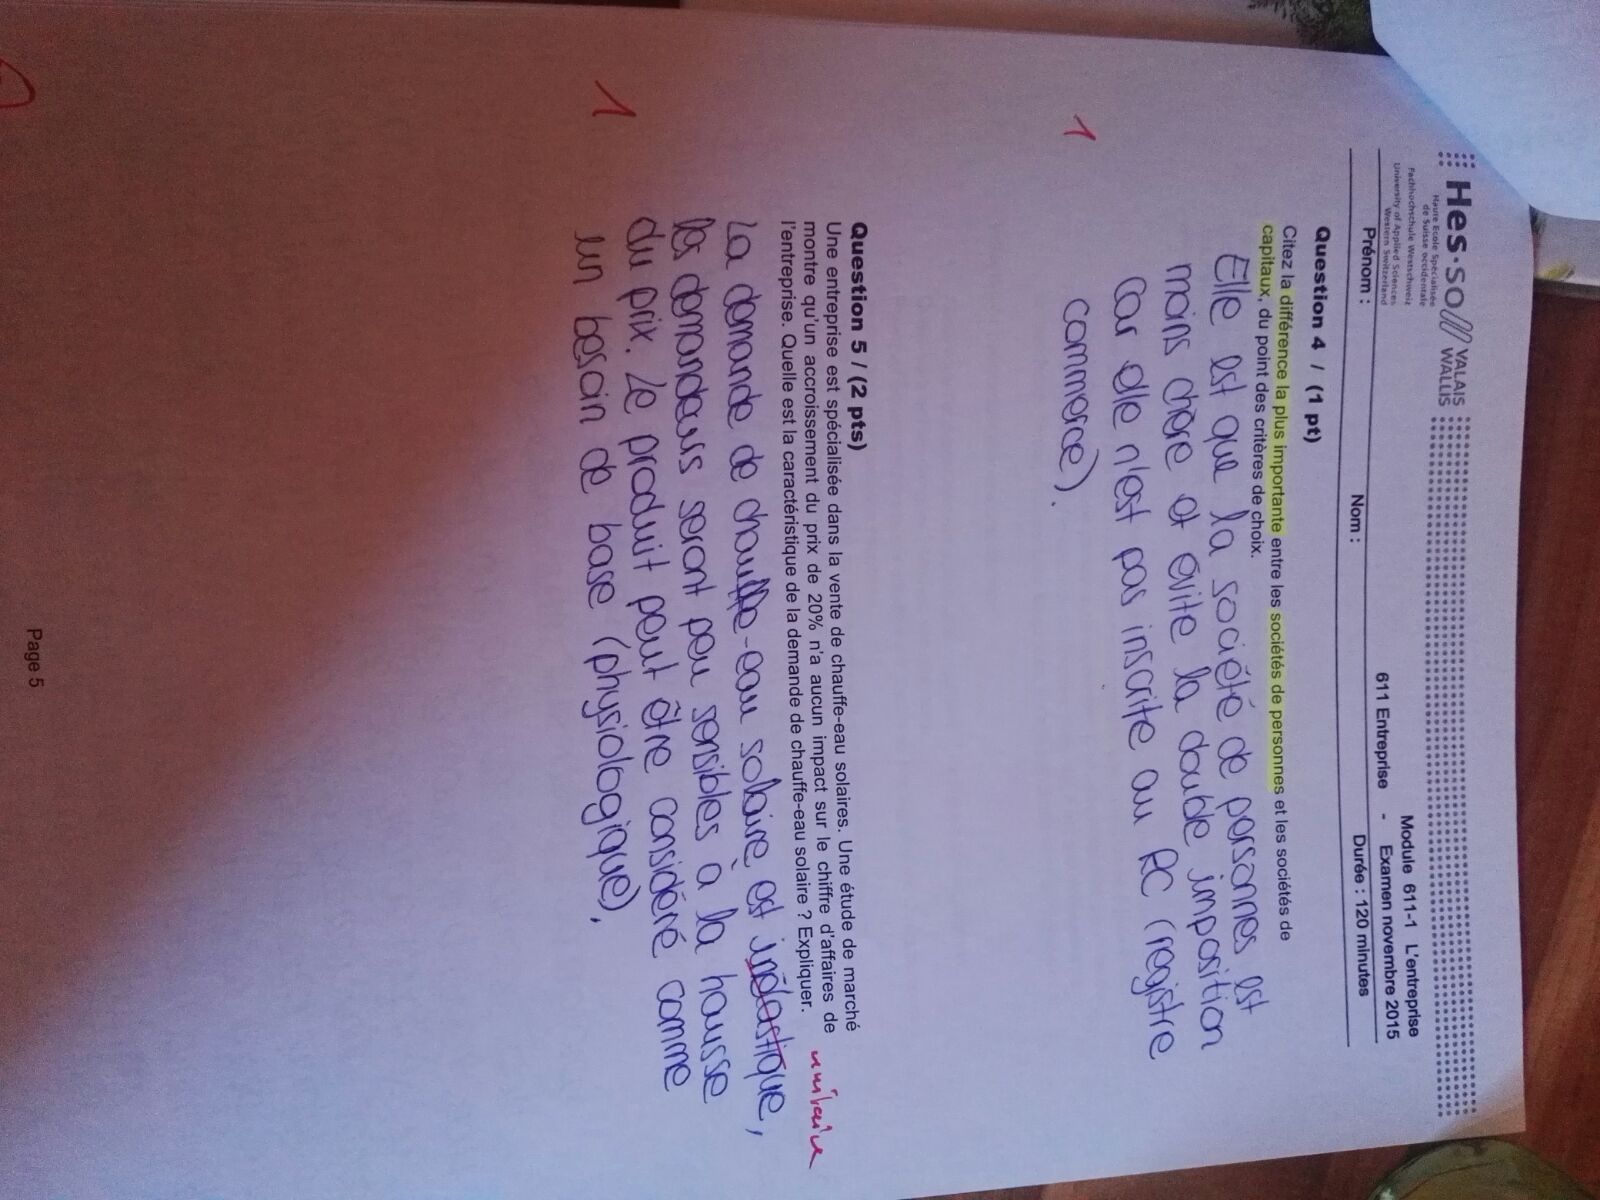 Hes·so VALAIS
WALLIS
Haute Ecole Spécialisée
de Suisse occidentale
Fachhochschule Westschweiz
University of Applied Sciences
Western Switzerland
Module 611-1 L'entreprise
611 Entreprise - Examen novembre 2015
Prénom : Nom : Durée : 120 minutes
Question 4 / (1 pt)
Citez la différence la plus importante entre les sociétés de personnes et les sociétés de
capitaux, du point des critères de choix.
Elle est que la société de personnes est
moins chère et évite la double imposition
car elle n'est pas inscrite au RC (registre
commerce).
1
Question 5 / (2 pts)
Une entreprise est spécialisée dans la vente de chauffe-eau solaires. Une étude de marché
montre qu'un accroissement du prix de 20% n'a aucun impact sur le chiffre d'affaires de
l'entreprise. Quelle est la caractéristique de la demande de chauffe-eau solaire ? Expliquer.
unitaire
La demande de chauffe-eau solaire est inélastique,
les demandeurs seront peu sensibles à la hausse
du prix. Le produit peut être considéré comme
un besoin de base (physiologique),
1
Page 5